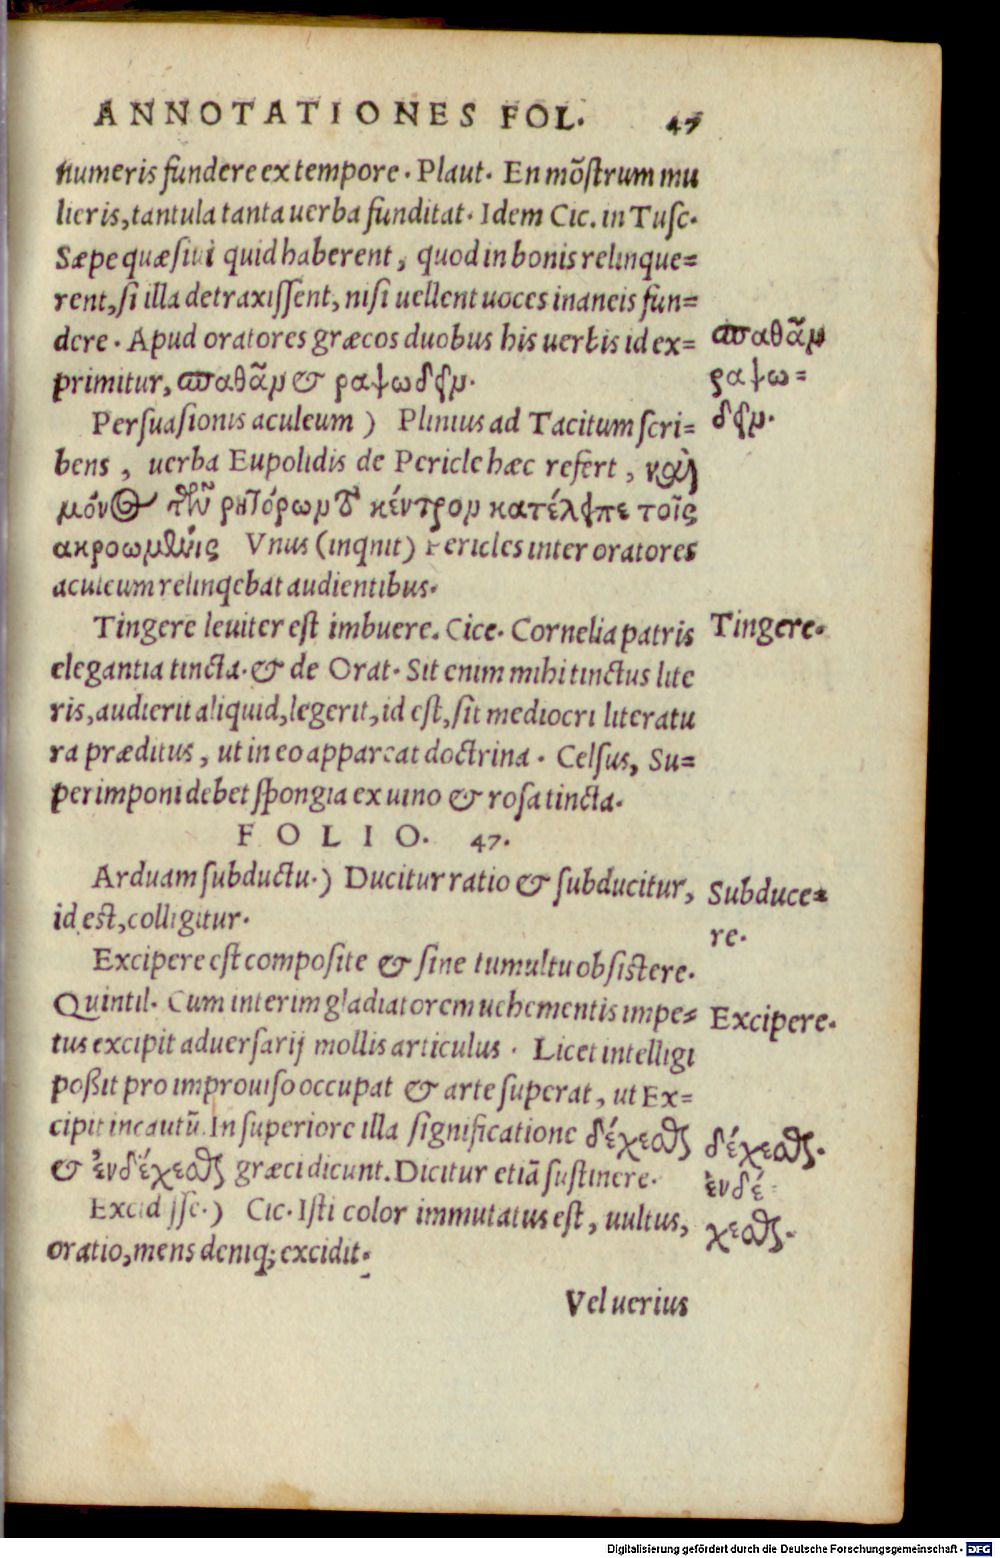 ANNOTATIONES FOL. 47
numeris fundere ex tempore. Plaut. En mõstrum mu
lieris, tantula tanta uerba funditat. Idem Cic. in Tusc.
Sæpe quæsiui quid haberent, quod in bonis relinque=
rent, si illa detraxissent, nisi uellent uoces inaneis fun=
dere. Apud oratores græcos duobus his uerbis id ex=
primitur, σπαθᾶν & ραψωδεῖν.
σπαθᾶν
ραψω=
δεῖν.
Persuasionis aculeum ) Plinius ad Tacitum scri=
bens, uerba Eupolidis de Pericle hæc refert, καὶ
μόνος τῶν ρητόρων τὸ κέντρον κατέλειπε τοῖς
ακροωμένοις Vnus (inqnit) Pericles inter oratores
aculeum relinqebat audientibus.
Tingere leuiter est imbuere. Cice. Cornelia patris
Tingere.
elegantia tincta. & de Orat. Sit enim mihi tinctus lite
ris, audierit aliquid, legerit, id est, sit mediocri literatu
ra præditus, ut in eo appareat doctrina. Celsus, Su=
perimponi debet spongia ex uino & rosa tincta.
FOLIO. 47.
Arduam subductu.) Ducitur ratio & subducitur,
id est, colligitur.
Subduce=
re.
Excipere est composite & sine tumultu obsistere.
Quintil. Cum interim gladiatorem uehementis impe=
Excipere.
tus excipit aduersarij mollis articulus. Licet intelligi
poßit pro improuiso occupat & arte superat, ut Ex=
cipit incautũ. In superiore illa significatione δέχεσθαι
& ἐνδέχεσθαι græci dicunt. Dicitur etiã sustinere.
δέχεσθαι.
ἐνδέ=
χεσθαι.
Excidisse.) Cic. Isti color immutatus est, uultus,
oratio, mens deniq; excidit.
Vel uerius
Digitalisierung gefördert durch die Deutsche Forschungsgemeinschaft - DFG